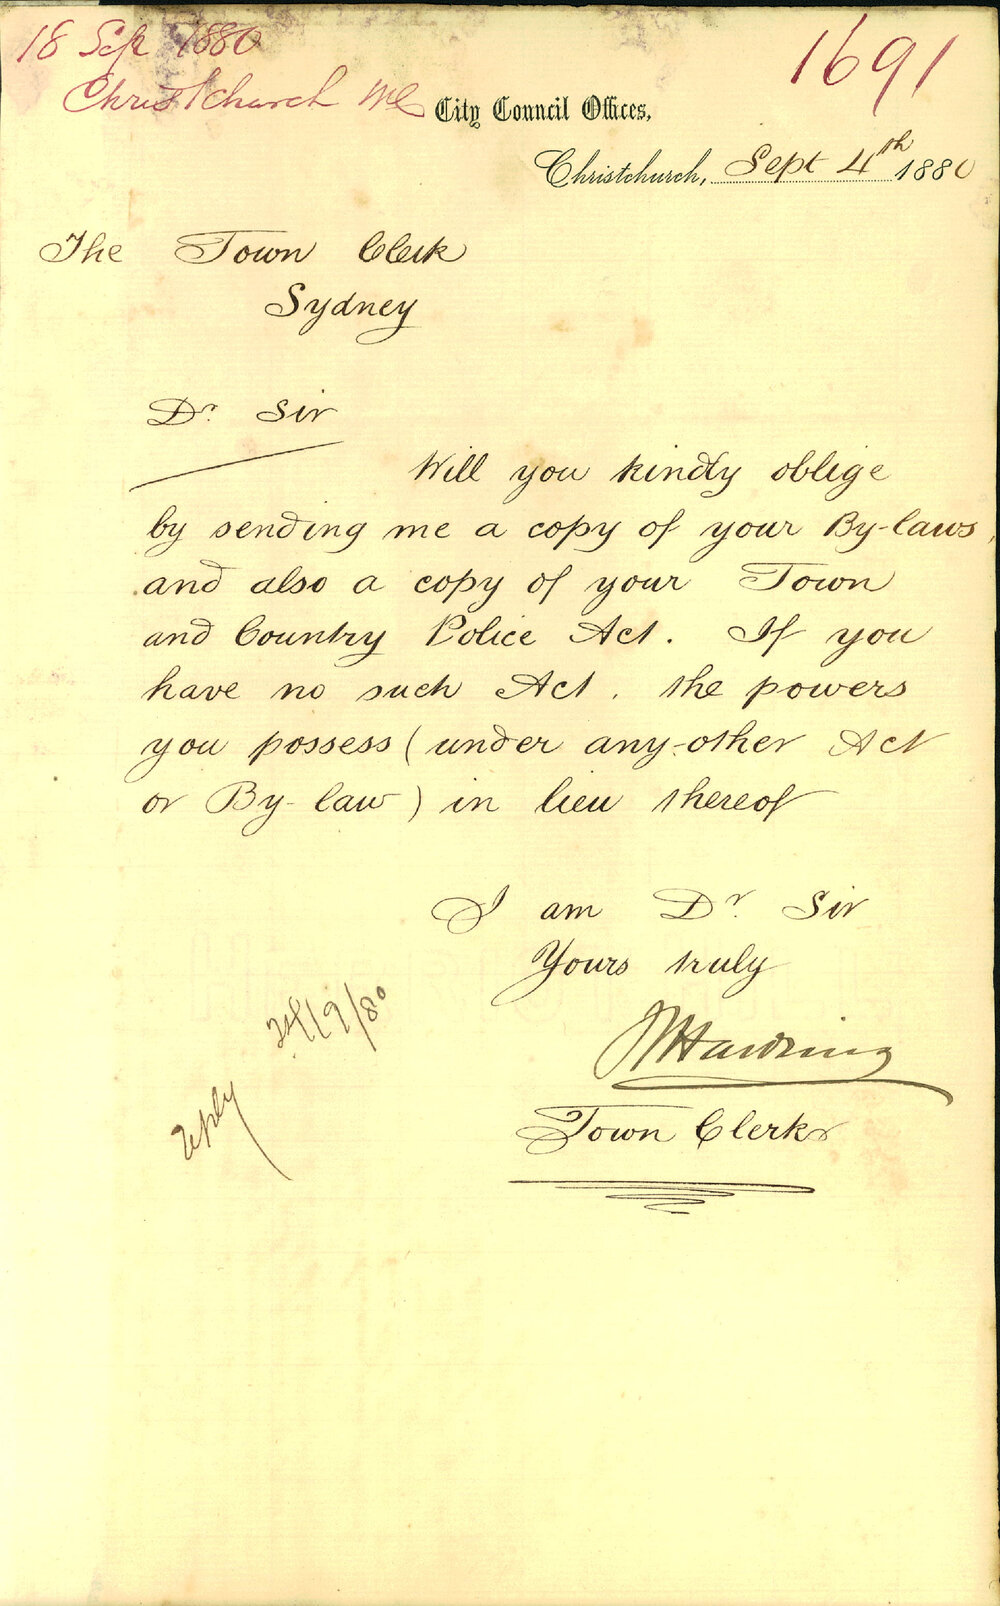 18 Sep 1880
1691
Christchurch MC
City Council Offices,
Christchurch, Sept 4th 1880
The Town Clerk
Sydney
Dr Sir
Will you kindly oblige
by sending me a copy of your By-laws,
and also a copy of your Town
and Country Police Act. If you
have no such Act, the powers
you possess (under any other Act
or By-law) in lieu thereof
I am Dr. Sir
Yours truly
Haskins
Town Clerk
reply 24/9/80